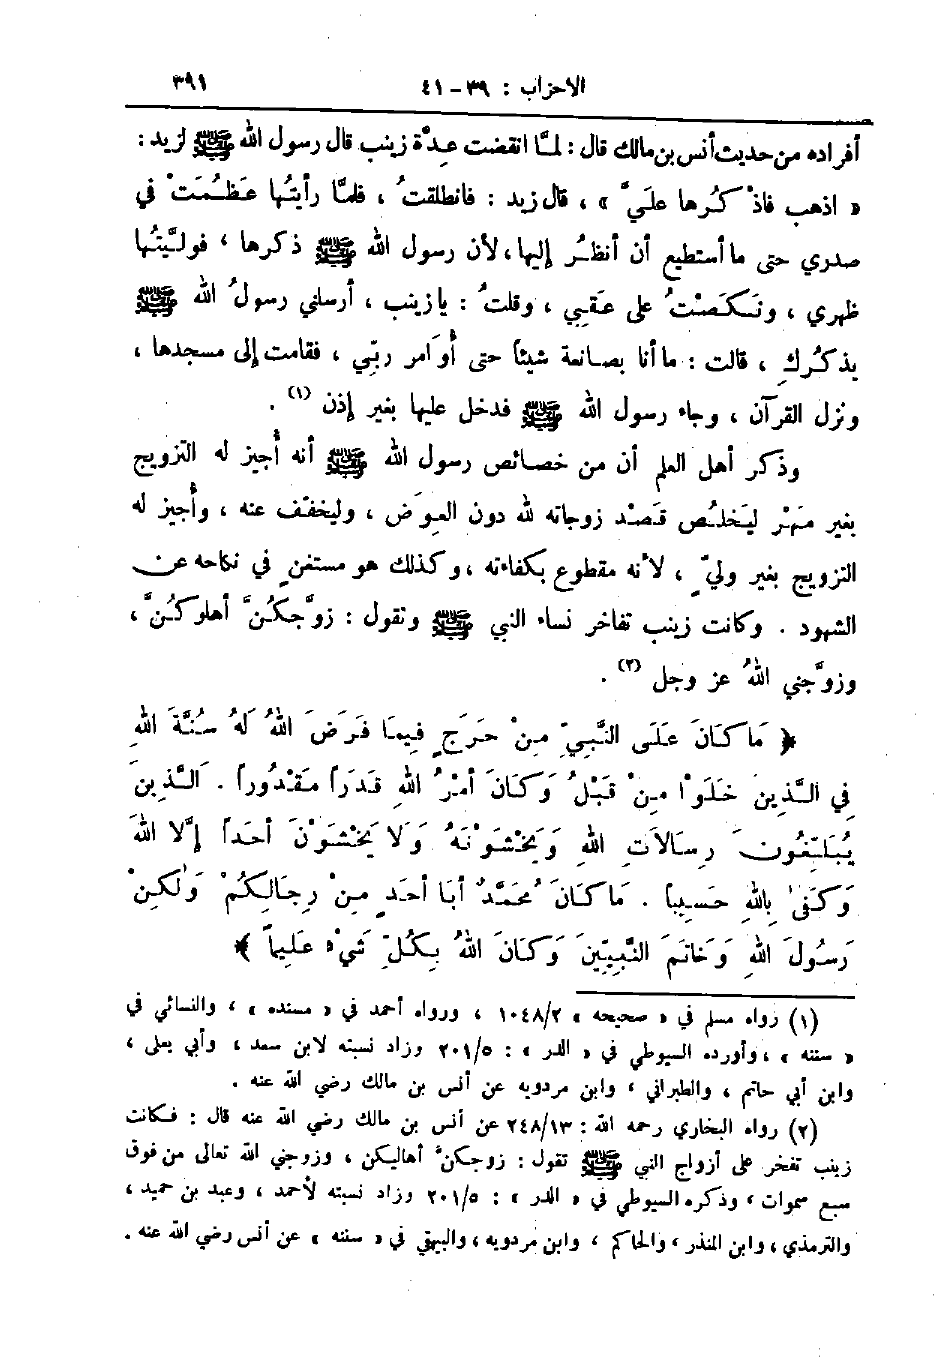 الاحزاب : ٣٩ - ٤١ ٣٩١
أفراده من حديث أنس بن مالك قال : لمَّا انقضت عِدَّة زينب قال رسول الله ﷺ لزيد :
« اذهب فاذْكُرها عليَّ » ، قال زيد : فانطلقتُ ، فلمَّا رأيتُها عَظُمَتْ في
صدري حتى ما أستطيع أن أنظُر إليها، لأن رسول الله ﷺ ذكرها ، فولَّيتُها
ظهري ، ونَكَصْتُ على عَقِبي ، وقلتُ : يا زينب ، أرسلني رسولُ الله ﷺ
يذكُركِ ، قالت : ما أنا بصانعة شيئاً حتى أُوَامر ربِّي ، فقامت إلى مسجدها ،
ونزل القرآن ، وجاء رسول الله ﷺ فدخل عليها بغير إذن (١) .
وذكر أهل العلم أن من خصائص رسول الله ﷺ أنه أُجيز له التزويج
بغير مَهْر ليَخلُص قَصْد زوجاته لله دون العِوَض ، وليخفّف عنه ، وأُجيز له
التزويج بغير وليٍّ ، لأنه مقطوع بكفاءته ، وكذلك هو مستغنٍ في نكاحه عن
الشهود . وكانت زينب تفاخر نساء النبي ﷺ وتقول : زوَّجكُنَّ أهلوكُنَّ ،
وزوَّجني اللهُ عز وجل (٢) .
﴿ مَا كَانَ عَلَى النَّبِيِّ مِنْ حَرَجٍ فِيمَا فَرَضَ اللهُ لَهُ سُنَّةَ اللهِ
فِي الَّذِينَ خَلَوْا مِنْ قَبْلُ وَكَانَ أَمْرُ اللهِ قَدَراً مَقْدُوراً . الَّذِينَ
يُبَلِّغُونَ رِسَالَاتِ اللهِ وَيَخْشَوْنَهُ وَلَا يَخْشَوْنَ أَحَداً إِلَّا اللهَ
وَكَفَىٰ بِاللهِ حَسِيباً . مَا كَانَ مُحَمَّدٌ أَبَا أَحَدٍ مِنْ رِجَالِكُمْ وَلٰكِنْ
رَسُولَ اللهِ وَخَاتَمَ النَّبِيِّينَ وَكَانَ اللهُ بِكُلِّ شَيْءٍ عَلِيماً ﴾
(١) رواه مسلم في « صحيحه » ١٠٤٨/٢ ، ورواه أحمد في « مسنده » ، والنسائي في
« سننه » ، وأورده السيوطي في « الدر » : ٢٠١/٥ وزاد نسبته لابن سعد ، وأبي يعلى ،
وابن أبي حاتم ، والطبراني ، وابن مردويه عن أنس بن مالك رضي الله عنه .
(٢) رواه البخاري رحمه الله : ٢٤٨/١٣ عن أنس بن مالك رضي الله عنه قال : فكانت
زينب تفخر على أزواج النبي ﷺ تقول : زوجكنَّ أهاليكن ، وزوجني الله تعالى من فوق
سبع سموات ، وذكره السيوطي في « الدر » : ٢٠١/٥ وزاد نسبته لأحمد ، وعبد بن حميد ،
والترمذي ، وابن المنذر ، والحاكم ، وابن مردويه ، والبيهقي في « سننه » عن أنس رضي الله عنه .